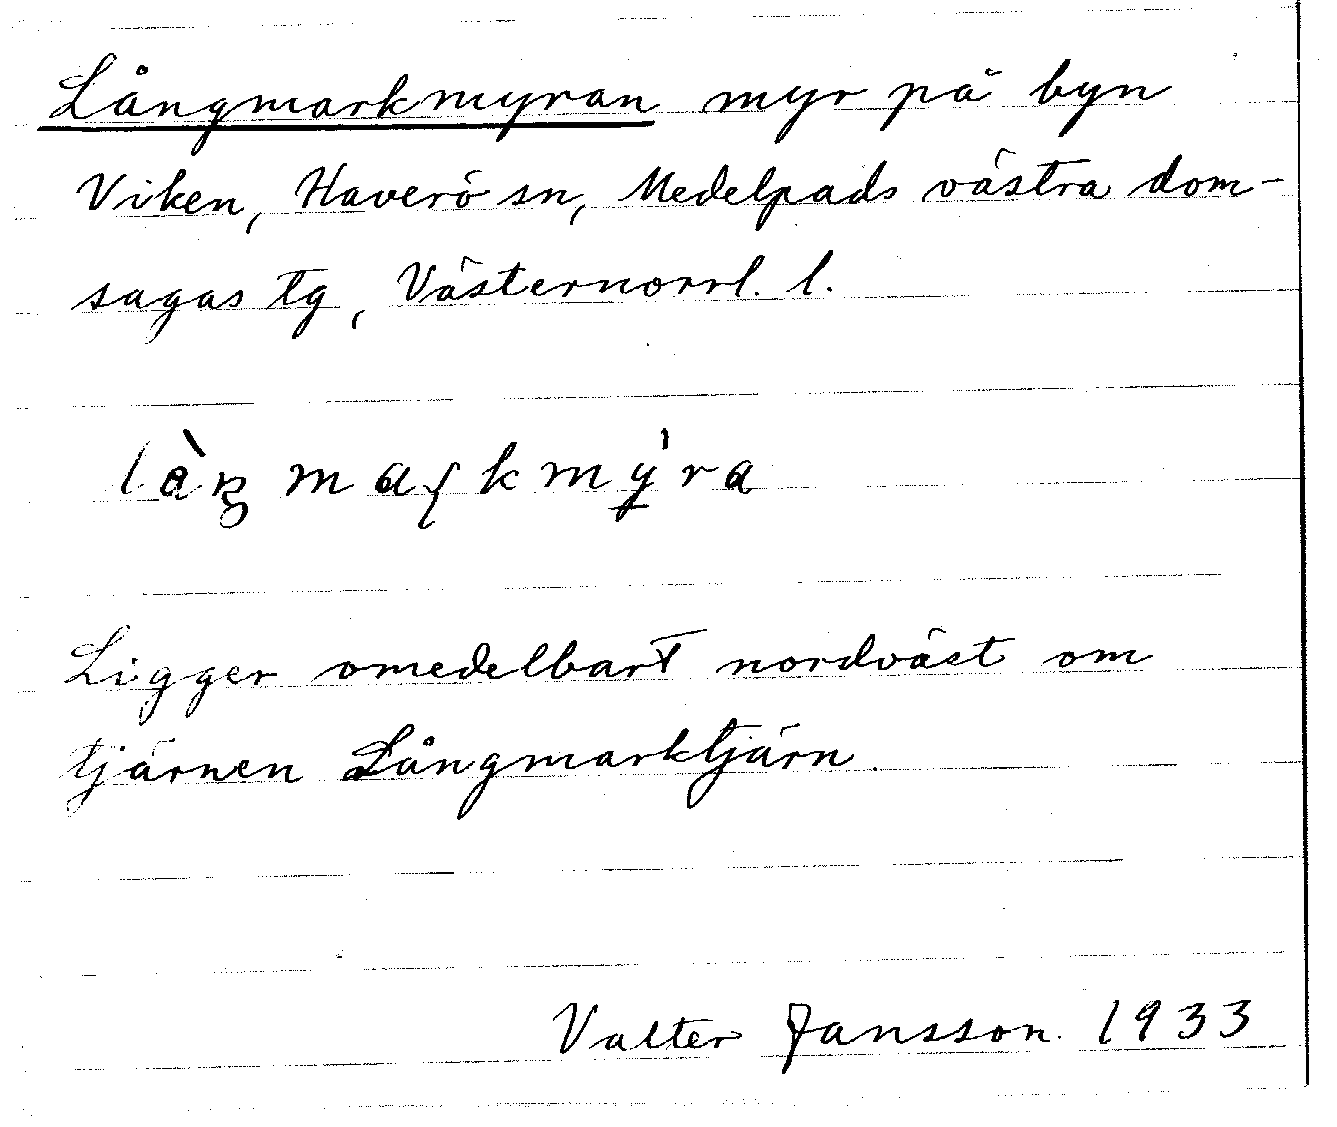 Långmarkmyran myr på byn
Viken, Haverö sn, Medelpads västra dom-
sagas tg, Västernorrl. l.
Ligger omedelbart nordväst om
tjärnen Långmarktjärn.
Valter Jansson. 1933